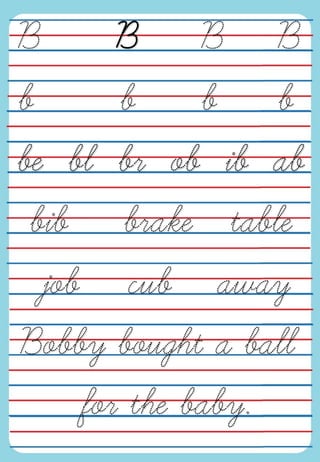 B B B B
b b b b
be bl br ob ib ab
bib brake table
job cub away
Bobby bought a ball
for the baby.